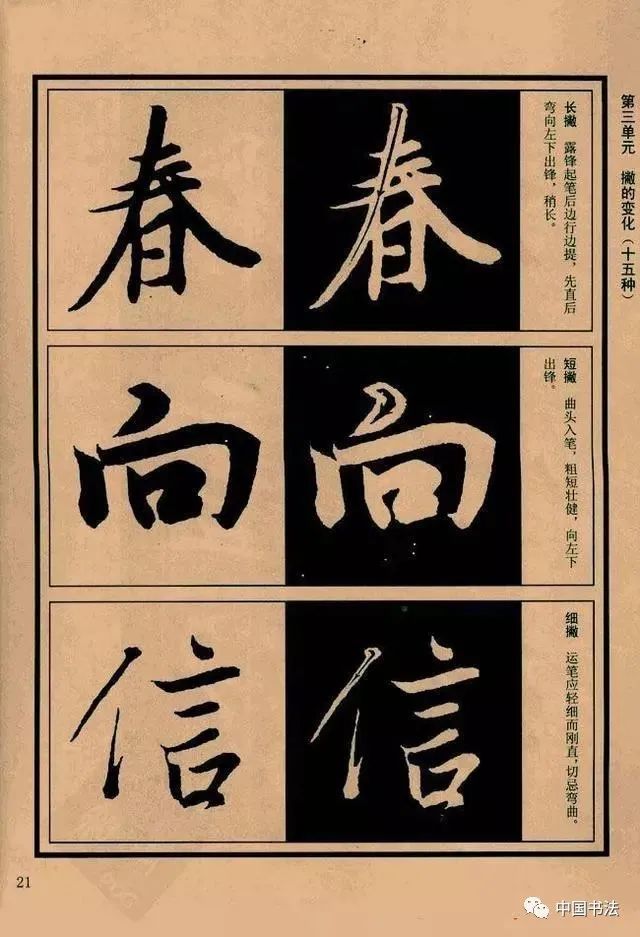 第三单元 撇的变化（十五种）
长撇 露锋起笔后边行边提，先直后
弯向左下出锋，稍长。
春 春
短撇 曲头入笔，粗短壮健，向左下
出锋。
向 向
细撇 运笔应轻细而刚直，切忌弯曲。
信 信
21
中国书法